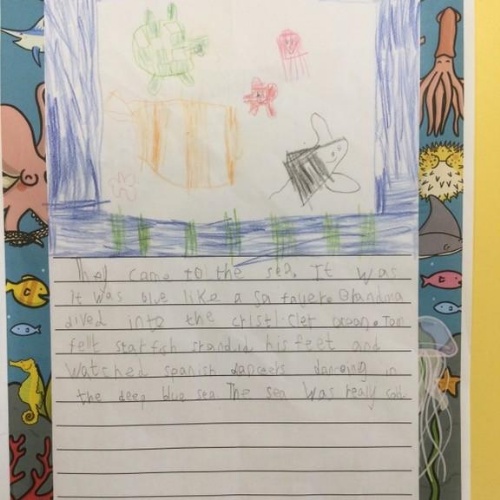 They came to the sea. It was
It was blue like a Sa fayer. Grandma
dived into the cristl cler ocean. Tom
felt starfish his feet and
watched spanish dancers dancing in
the deep blue sea The sea was really